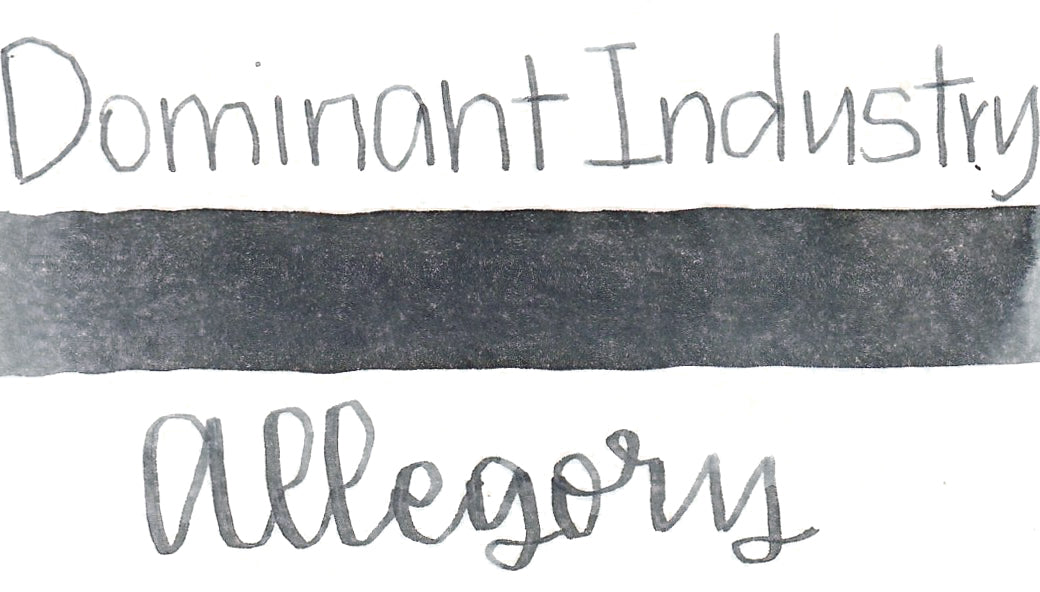 Dominant Industry
Allegory